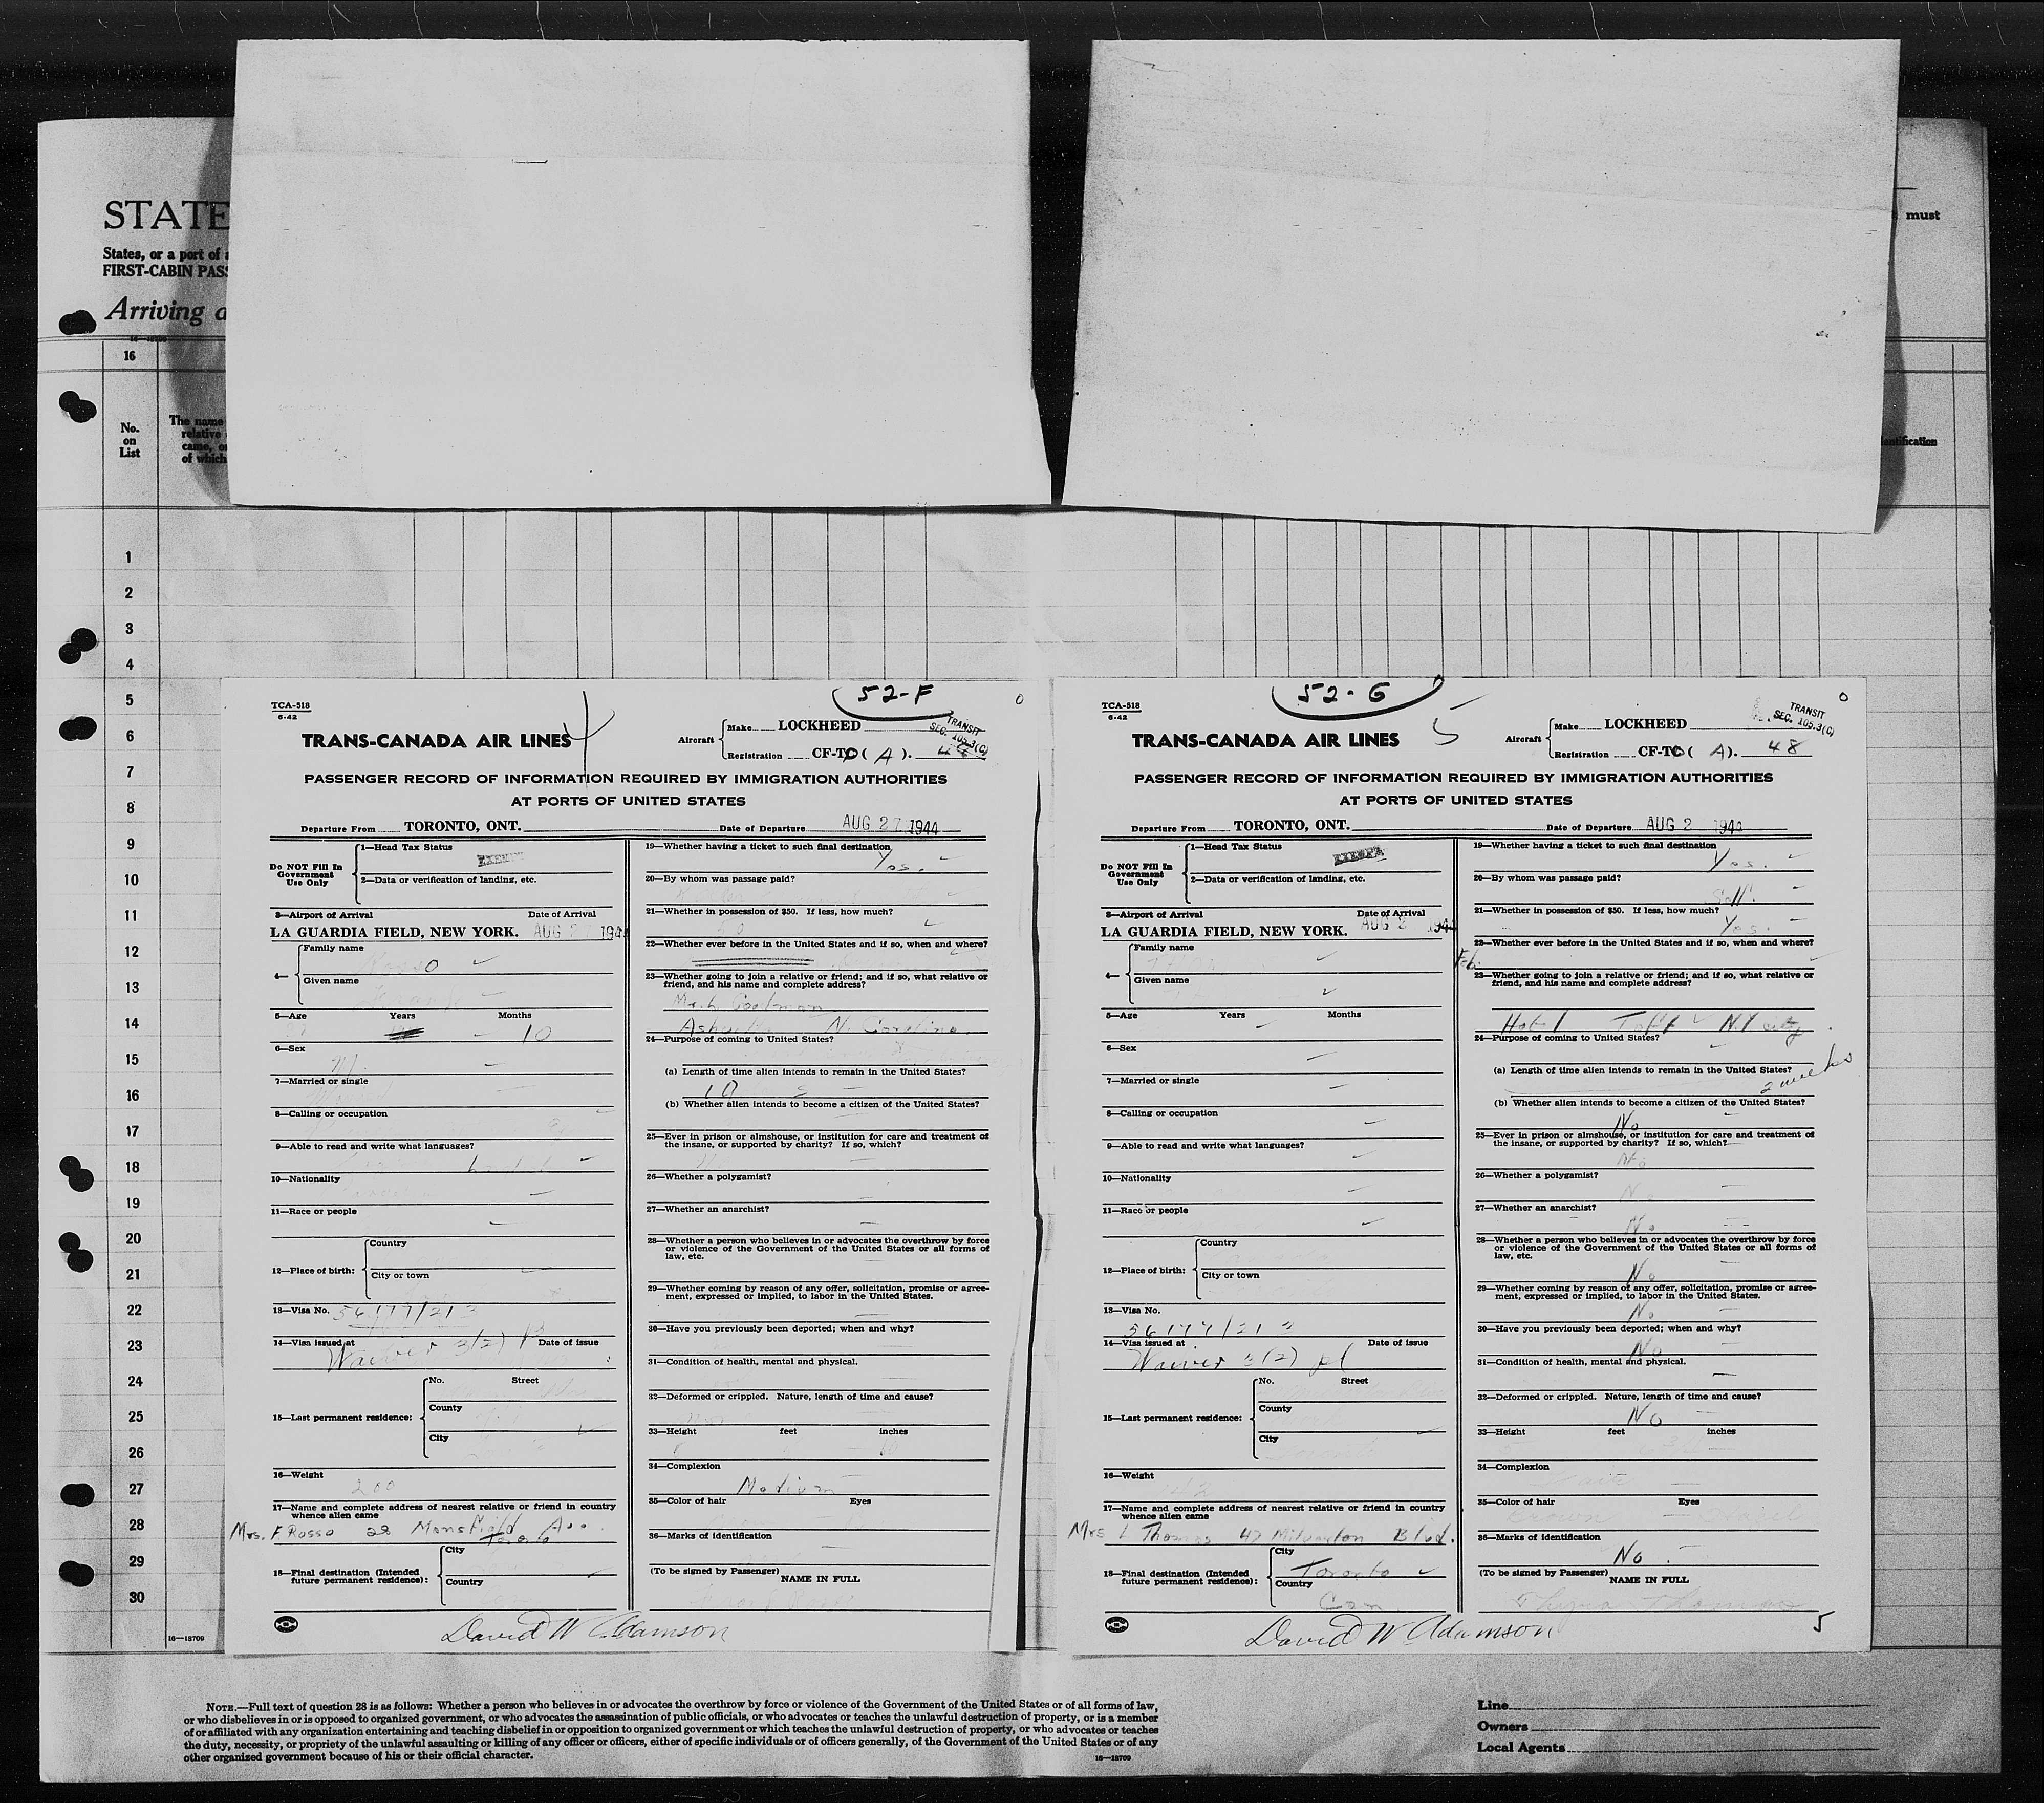 STATE
States, or a port of
FIRST-CABIN PAS
Arriving a
must
16—18709
16
No.
on
List
The name
relative
came, o
of which
entification
1
2
3
4
5
6
7
8
9
10
11
12
13
14
15
16
17
18
19
20
21
22
23
24
25
26
27
28
29
30
16—18709
52-F
TCA-518
6-42
4
TRANS-CANADA AIR LINES
Aircraft
Make LOCKHEED
Registration CF-TC ( A ). 44
TRANSIT
SEC. 105.3(C)
PASSENGER RECORD OF INFORMATION REQUIRED BY IMMIGRATION AUTHORITIES
AT PORTS OF UNITED STATES
Departure From TORONTO, ONT. Date of Departure AUG 27 1944
Do NOT Fill In
Government
Use Only
1—Head Tax Status EXEMPT
2—Data or verification of landing, etc.
3—Airport of Arrival Date of Arrival
LA GUARDIA FIELD, NEW YORK. AUG 2 194
4—
Family name
Rosso
Given name
5—Age Years Months
10
6—Sex
M.
7—Married or single
8—Calling or occupation
9—Able to read and write what languages?
10—Nationality
11—Race or people
12—Place of birth:
Country
City or town
13—Visa No. 56177/213
14—Visa issued at Date of issue
Waiver 3(2)
15—Last permanent residence:
No. Street
County
City
16—Weight
200
17—Name and complete address of nearest relative or friend in country
whence alien came
Mrs. F. Rosso 28 Mansfield Ave.
Toronto
18—Final destination (Intended
future permanent residence):
City
Country
David W Adamson
19—Whether having a ticket to such final destination
Yes.
20—By whom was passage paid?
21—Whether in possession of $50. If less, how much?
22—Whether ever before in the United States and if so, when and where?
23—Whether going to join a relative or friend; and if so, what relative or
friend, and his name and complete address?
Mr. L
Ashville N. Carolina.
24—Purpose of coming to United States?
(a) Length of time alien intends to remain in the United States?
10
(b) Whether alien intends to become a citizen of the United States?
25—Ever in prison or almshouse, or institution for care and treatment of
the insane, or supported by charity? If so, which?
26—Whether a polygamist?
27—Whether an anarchist?
28—Whether a person who believes in or advocates the overthrow by force
or violence of the Government of the United States or all forms of
law, etc.
29—Whether coming by reason of any offer, solicitation, promise or agree-
ment, expressed or implied, to labor in the United States.
30—Have you previously been deported; when and why?
31—Condition of health, mental and physical.
32—Deformed or crippled. Nature, length of time and cause?
33—Height feet inches
34—Complexion
Medium
35—Color of hair Eyes
36—Marks of identification
(To be signed by Passenger)
NAME IN FULL
52-G
TCA-518
6-42
5
TRANS-CANADA AIR LINES
Aircraft
Make LOCKHEED
Registration CF-TC( A). 48
TRANSIT
SEC. 105.3(C)
PASSENGER RECORD OF INFORMATION REQUIRED BY IMMIGRATION AUTHORITIES
AT PORTS OF UNITED STATES
Departure From TORONTO, ONT. Date of Departure AUG 2 194
Do NOT Fill In
Government
Use Only
1—Head Tax Status EXEMPT
2—Data or verification of landing, etc.
3—Airport of Arrival Date of Arrival
LA GUARDIA FIELD, NEW YORK. AUG 2 194
4—
Family name
Given name
5—Age Years Months
6—Sex
7—Married or single
8—Calling or occupation
9—Able to read and write what languages?
10—Nationality
11—Race or people
12—Place of birth:
Country
City or town
13—Visa No.
56177/213
14—Visa issued at Date of issue
Waiver 3(2) pl
15—Last permanent residence:
No. Street
County
City
16—Weight
17—Name and complete address of nearest relative or friend in country
whence alien came
Mrs L Thomas 42 Milverton Blvd.
18—Final destination (Intended
future permanent residence):
City
Toronto
Country
Can
David W Adamson
19—Whether having a ticket to such final destination
Yes.
20—By whom was passage paid?
Self.
21—Whether in possession of $50. If less, how much?
Yes.
22—Whether ever before in the United States and if so, when and where?
Feb.
23—Whether going to join a relative or friend; and if so, what relative or
friend, and his name and complete address?
Hotel Taft N.Y city
24—Purpose of coming to United States?
(a) Length of time alien intends to remain in the United States?
2 weeks
(b) Whether alien intends to become a citizen of the United States?
No
25—Ever in prison or almshouse, or institution for care and treatment of
the insane, or supported by charity? If so, which?
No
26—Whether a polygamist?
No
27—Whether an anarchist?
No
28—Whether a person who believes in or advocates the overthrow by force
or violence of the Government of the United States or all forms of
law, etc.
No
29—Whether coming by reason of any offer, solicitation, promise or agree-
ment, expressed or implied, to labor in the United States.
No
30—Have you previously been deported; when and why?
No
31—Condition of health, mental and physical.
32—Deformed or crippled. Nature, length of time and cause?
No
33—Height feet inches
34—Complexion
Fair
35—Color of hair Eyes
Brown
36—Marks of identification
No.
(To be signed by Passenger)
NAME IN FULL
Thyra Thomas
5
NOTE.—Full text of question 28 is as follows: Whether a person who believes in or advocates the overthrow by force or violence of the Government of the United States or of all forms of law,
or who disbelieves in or is opposed to organized government, or who advocates the assassination of public officials, or who advocates or teaches the unlawful destruction of property, or is a member
of or affiliated with any organization entertaining and teaching disbelief in or opposition to organized government or which teaches the unlawful destruction of property, or who advocates or teaches
the duty, necessity, or propriety of the unlawful assaulting or killing of any officer or officers, either of specific individuals or of officers generally, of the Government of the United States or of any
other organized government because of his or their official character.
16—18709
Line
Owners
Local Agents